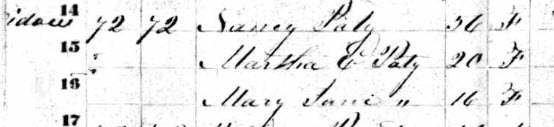 14
72 72 Nancy Paty 36 F
15
Martha E Paty 20 F
16
Mary Jane " 16 F
17